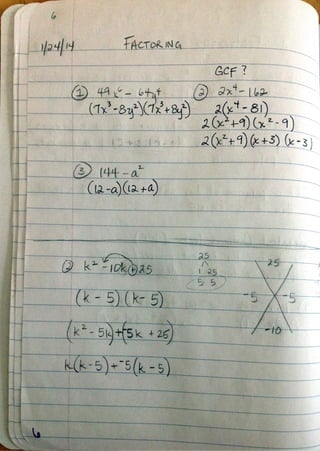 6
1/24/14 FACTORING
GCF?
① 49x⁶ - 64y⁴
(7x³-8y²)(7x³+8y²)
② 2x⁴ - 162
2(x⁴ - 81)
2(x²+9)(x²-9)
2(x²+9)(x+3)(x-3)
③ 144 - a²
(12-a)(12+a)
② k² - 10k + 25
(k - 5)(k - 5)
(k² - 5k)+(⁻5k + 25)
k(k-5)+⁻5(k-5)
25
1 25
5 5
25
-5 -5
-10
6